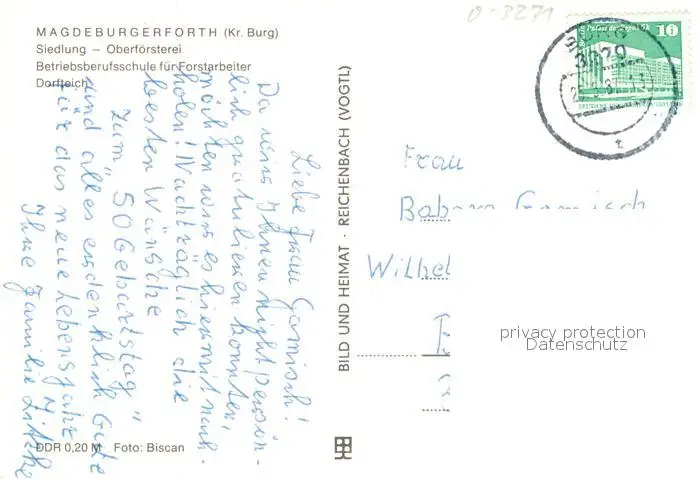 o-3271
MAGDEBURGERFORTH (Kr. Burg)
Siedlung – Oberförsterei
Betriebsberufsschule für Forstarbeiter
Dorfteich
Liebe Frau Garnisch!
Da wir Ihnen nicht persön-
lich gratulieren konnten,
möchten wir es hiermit nach-
holen! Nachträglich die
besten Wünsche
zum 50 Geburtstag"
und alles erdenklich Gute
für das neue Lebensjahr
Ihre Familie
DDR 0,20 M Foto: Biscan
BILD UND HEIMAT · REICHENBACH (VOGTL)
Palast der Republik
10
3270
Frau
Wilhel
privacy protection
Datenschutz